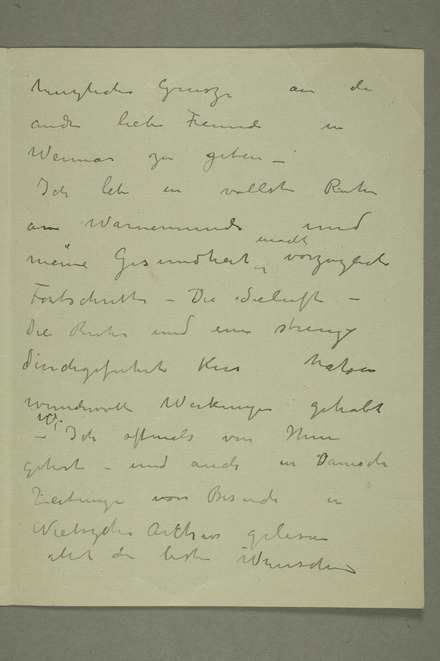 herzliche Grusze an die
andre liebe Freunde in
Weimar zu geben –
Ich lebe in vollste Ruhe
an Warnemunde und
meine Gesundheit macht vorzugliche
Fortschritte – Die Seeluft –
die Ruhe und eine strenge
durchgefuhrte Kur haben
wundervolle Wirkungen gehabt
– Ich oftmals von Ihnen
gehort – und auch in Danische
Zeitungen von Besuche in
Nietzsche Archiv gelesen
die beste Wunsche